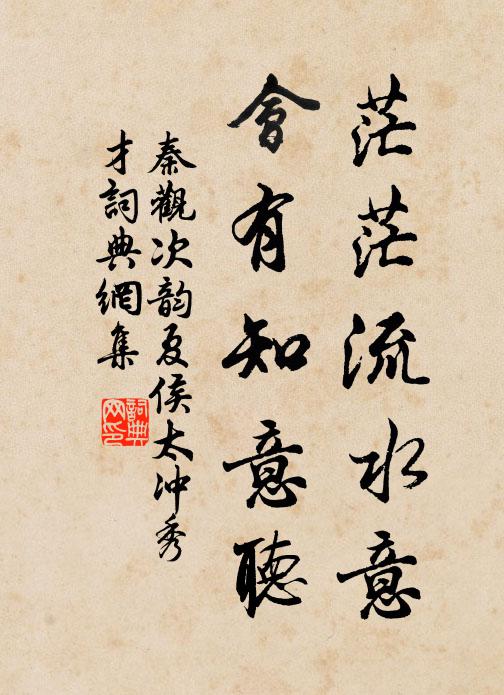 茫茫流水意
會有知意聽
秦觀次韵夏侯太沖秀
才詞典網集
詞典
网印